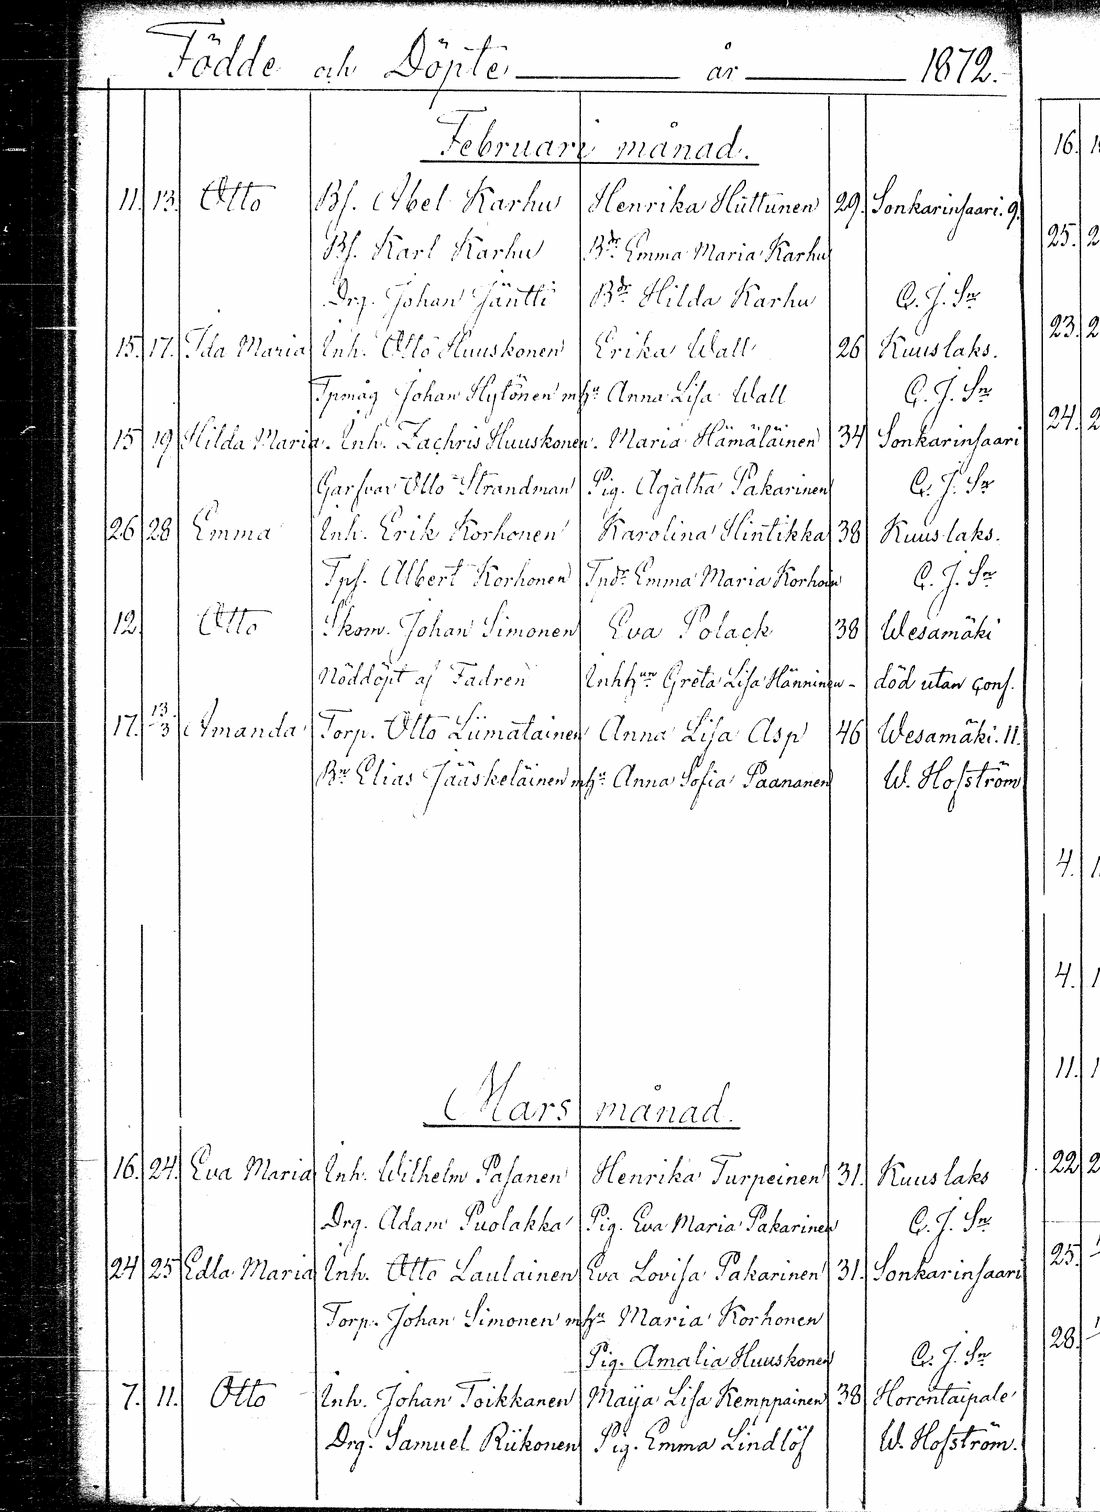 Födde och Döpte år 1872.
Februari månad.
11. 13. Otto Bs. Abel Karhu Henrika Huttunen 29. Sonkarinsaari. 9.
Bs. Karl Karhu Bdr. Emma Maria Karhu
Drg. Johan Jäntti Bdr. Hilda Karhu C. J. Sn
15. 17. Ida Maria Inh. Otto Huuskonen Erika Wall 26 Kuuslaks.
Tpmåg Johan Hytönen m hu Anna Lisa Wall C. J. Sn
15 19 Hilda Maria. Inh. Zachris Huuskonen. Maria Hämäläinen 34 Sonkarinsaari
Garfvar Otto Strandman Pig. Agatha Pakarinen C. J. Sn
26 28 Emma Inh. Erik Korhonen Karolina Hintikka 38 Kuuslaks.
Tps. Albert Korhonen Tndr Emma Maria Korhoin C. J. Sn
12. Otto Skom. Johan Simonen Eva Polack 38 Wesamäki
Nöddöpt af Fadren Inhhun Greta Lisa Hänninen - död utan conf.
17. 13/3 Amanda Torp. Otto Liimatainen Anna Lisa Asp 46 Wesamäki. 11.
Bn Elias Jääskeläinen m hu Anna Sofia Paananen W. Hofström
Mars månad.
16. 24. Eva Maria Inh. Wilhelm Pasanen Henrika Turpeinen 31. Kuuslaks
Drg. Adam Puolakka Pig. Eva Maria Pakarinen C. J. Sn
24 25 Edla Maria Inh. Otto Laulainen Eva Lovisa Pakarinen 31. Sonkarinsaari
Torp. Johan Simonen m hu Maria Korhonen
Pig. Amalia Huuskonen C. J. Sn
7. 11. Otto Inh. Johan Toikkanen Maija Lisa Kemppainen 38 Horontaipale
Drg. Samuel Riikonen Pig. Emma Lindlöf W. Hofström.
16.
25. 2
23. 2
24. 2
4.
4.
11.
22 2
25.
28.